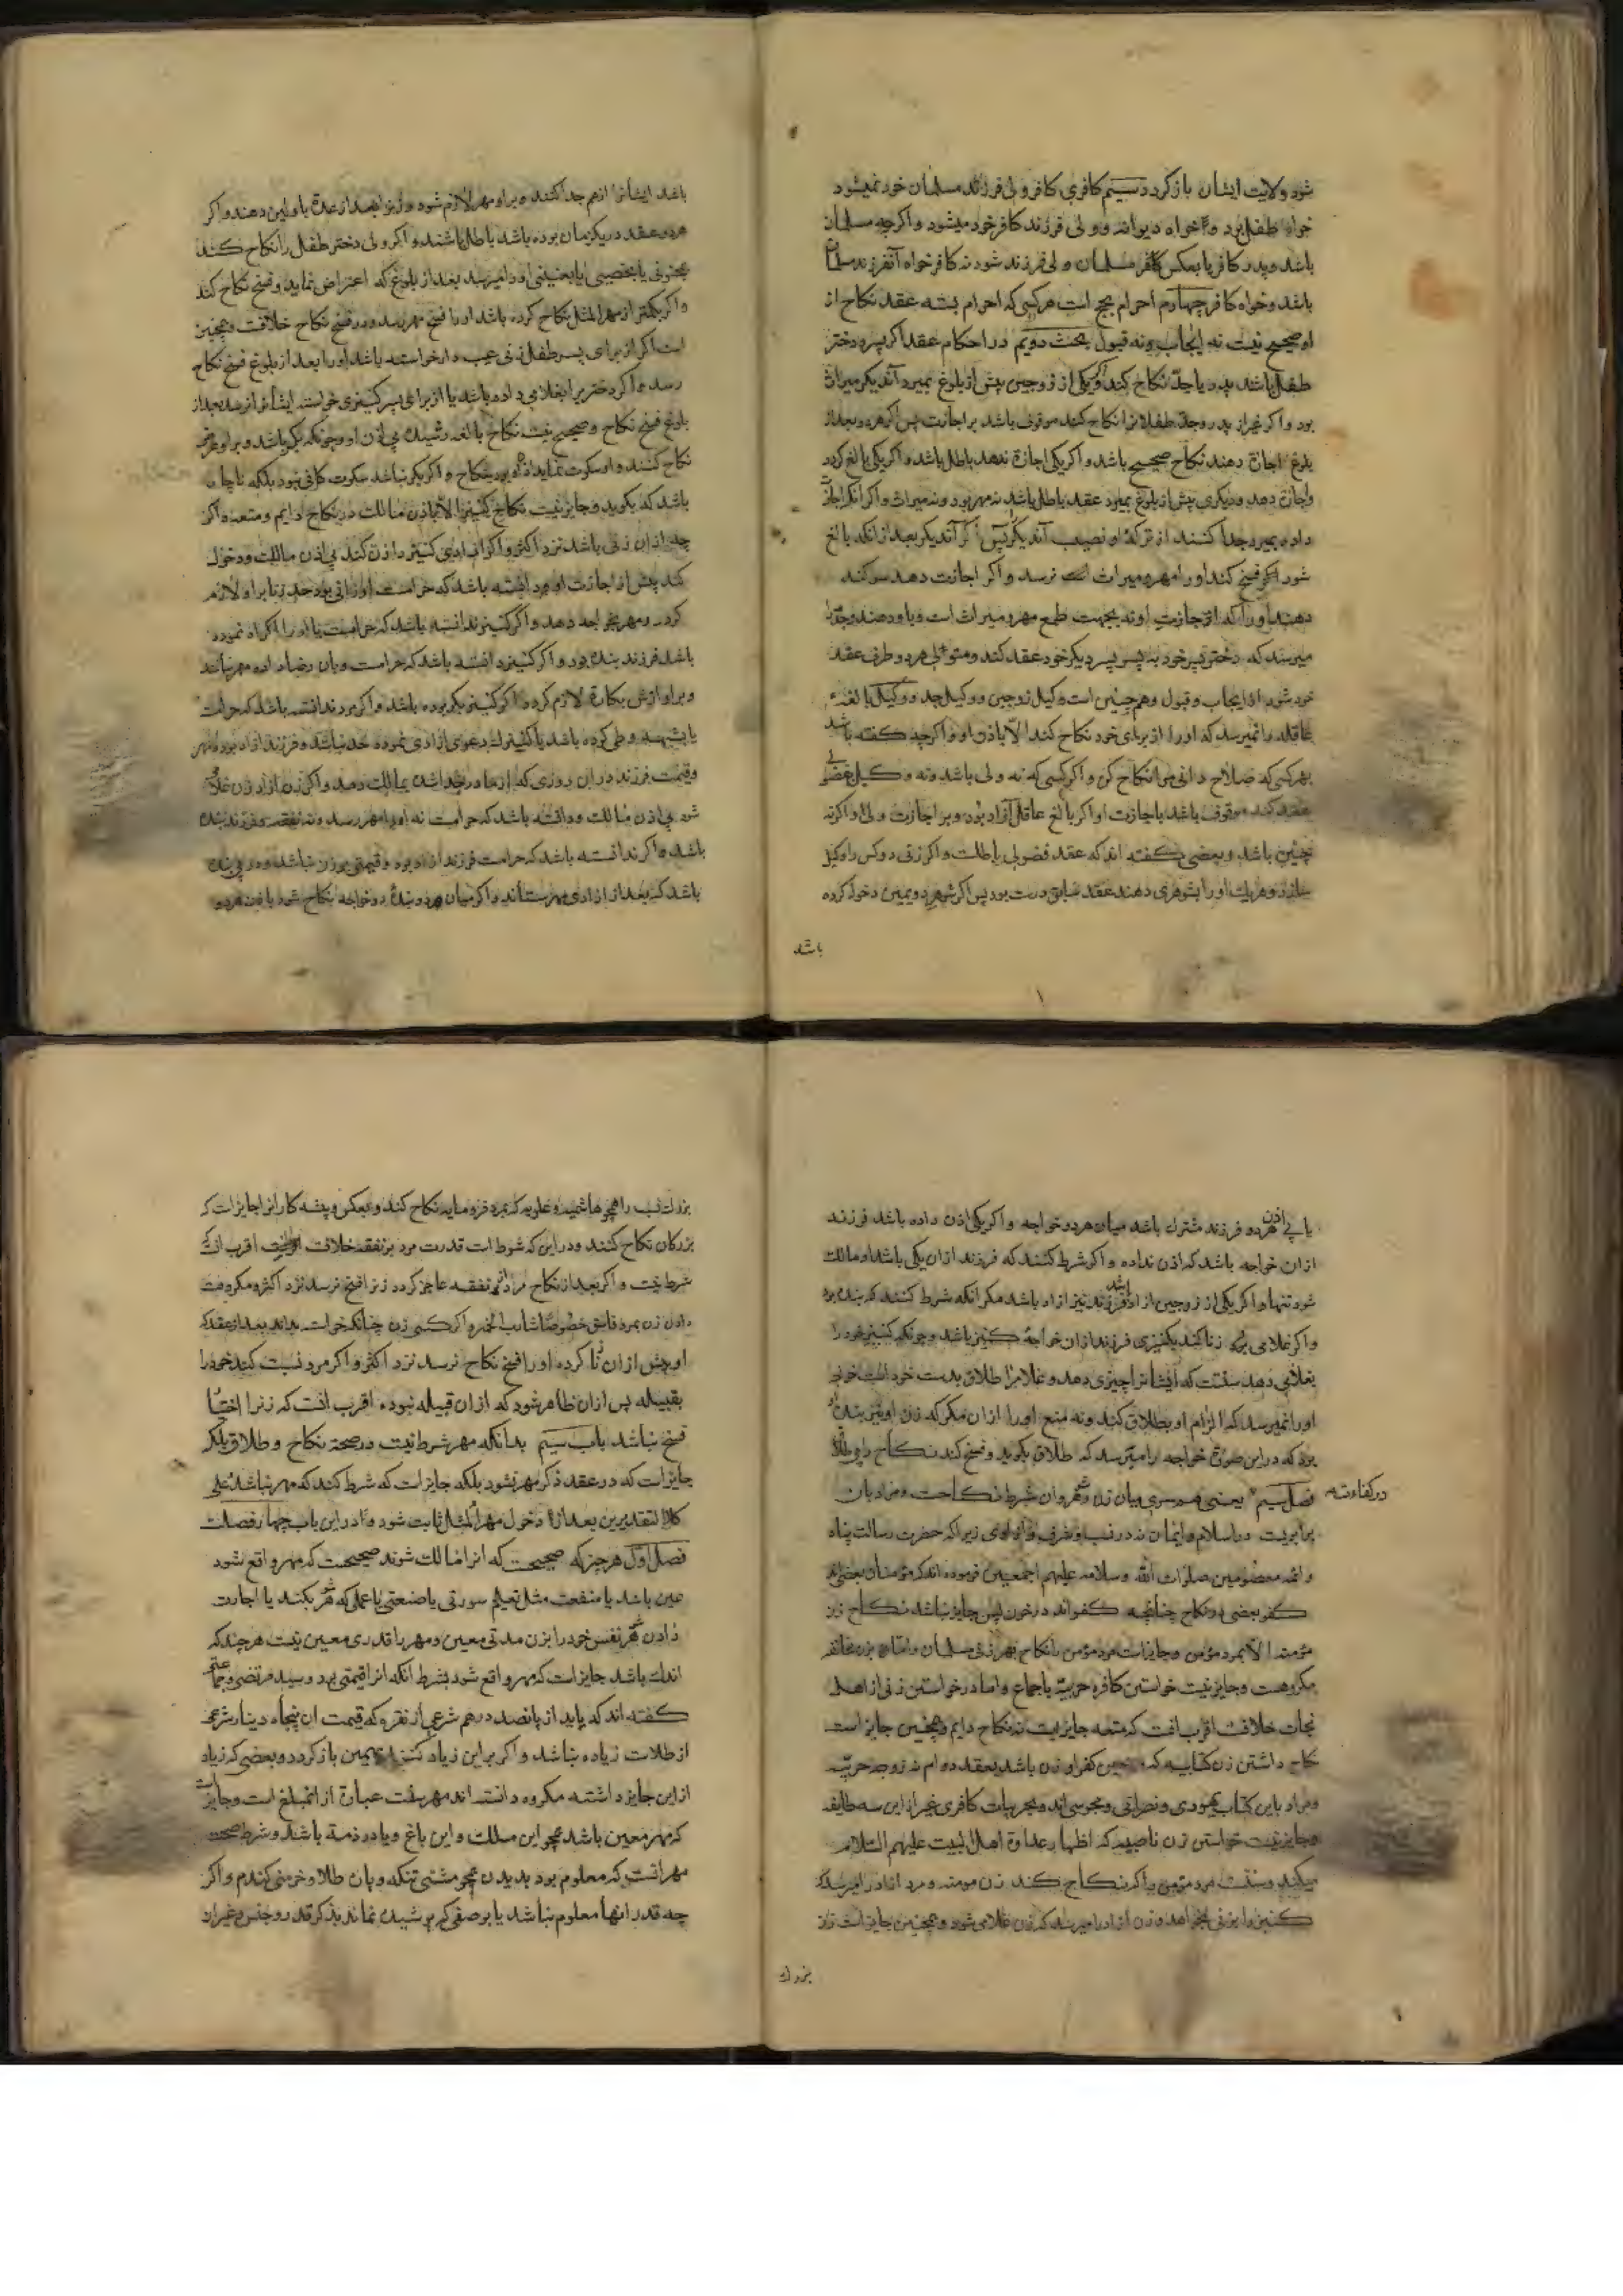 شود ولایت ایشان باز کردد سیم کافری کافر ولی فرزند مسلمان خود نمیشود
خواه طفل بود و خواه دیوانه و ولی فرزند کافر خود میشود و اکرچه مسلمان
باشد و پدر کافر یا بعکس مسلمان ولی فرزند شود نه کافر خواه آنفرزند مسلمان
باشد و خواه کافر چهارم احرام بحج است هرکسی که احرام بسته عقد نکاح از
او صحیح نیست نه ایجاب و نه قبول بحث دویم در احکام عقد اکر پسر و دختر
طفل باشند پدر یا جد نکاح کند و یکی از زوجین پیش از بلوغ بمیرد آندیکر میراث
بود و اکر غیر از پدر و جد طفلانرا نکاح کند موقوف باشد بر اجازت پس اکر هر دو بعد از
بلوغ اجازة دهند نکاح صحیح باشد و اکر یکی اجازة ندهد باطل باشد و اکر یکی بالغ کردد
واجازة دهد و دیکری پیش از بلوغ بمیرد عقد باطل باشد نه مهر بود و نه میراث و اکر آنکه اجازة
داده بمیرد جدا کنند از ترکهٔ او نصیب آندیکر پس اکر آندیکر بعد از آنکه بالغ
شود فسخ کند اورا مهر و میراث نرسد و اکر اجازت دهد سوکند
دهند اورا که اجازت او نه بجهت طمع مهر و میراث است و باو دهند و جدرا
میرسد که دختر پسر خود به پسر پسر دیکر خود عقد کند و متولی هر دو طرف عقد
خود شود از ایجاب و قبول و همچنین است وکیل زوجین و وکیل جد و وکیل بالغهٔ
عاقله را نمیرسد که اورا از برای خود نکاح کند الا باذن او و اکرچه کفته باشد
بهرکس که صلاح دانی مرا نکاح کن و اکر کسی که نه ولی باشد و نه وکیل فضولی
عقد کند موقوف باشد باجازت او اکر بالغ عاقل آزاد بود و بر اجازت ولی او اکر نه
چنین باشد و بعضی کفته اند که عقد فضولی باطلست و اکر زنی دو کس را وکیل
سازد و هریک اورا بشوهری دهند عقد سابق درست بود پس اکر شوهر دویمین دخول کرده
باشد
باشد ایشانرا از هم جدا کنند و بر او مهر لازم شود و زنرا بعد از عدة باولین دهند و اکر
هر دو عقد در یکزمان بوده باشد باطل باشند و اکر ولی دختر طفل را نکاح کند
بمجنونی یا بخصیی یا بعنینی اورا میرسد بعد از بلوغ که اعتراض نماید و فسخ نکاح کند
و اکر بکمتر از مهر المثل نکاح کرده باشد اورا فسخ مهر رسد و در فسخ نکاح خلافست و همچنین
است اکر از برای پسر طفل زنی عیب دار خواسته باشد اورا بعد از بلوغ فسخ نکاح
رسد و اکر دختر را بغلامی داده باشد یا از برای پسر کنیزی خواسته ایشانرا رسد بعد از
بلوغ فسخ نکاح و صحیح نیست نکاح بالغه رشیده بی اذن او و چونکه بکر باشد و بر او عرض
نکاح کنند و او سکوت نماید اذن بود بنکاح و اکر بکر نباشد سکوت کافی نبود بلکه ناچار
باشد که بکوید و جایز نیست نکاح کنیز الا باذن مالک در نکاح دایم و متعه و اکر
چه از آن زنی باشد نزد اکثر و اکر آزادی کنیز را زن کند بی اذن مالک و دخول
کند پیش از اجازت او و دانسته باشد که حرامست او زانی بود حد زنا بر او لازم
کردد و مهر بخواجه دهد و اکر کنیز ندانسته باشد که حرامست یا اورا اکراه نموده
باشد فرزند بنده بود و اکر کنیز دانسته باشد که حرامست و بان رضا داده مهر نباشد
و بر او ارش بکارة لازم کردد اکر کنیز بکر بوده باشد و اکر مرد ندانسته باشد که حرامست
یا بشبهه وطی کرده باشد یا کنیزک دعوی آزادی نموده حد نباشد و فرزند آزاد بود و مهر
و قیمت فرزند در آن روزی که از مادر جدا شده بمالک دهد و اکر زن آزاد زن غلامی
شود بی اذن مالک و دانسته باشد که حرامست نه اورا مهر رسد و نه نفقه و فرزند بنده
باشد و اکر ندانسته باشد که حرامست فرزند آزاد بود و قیمتی بر زن نباشد و در پی بنده
باشد که بعد از آزادی مهر بستاند و اکر میان دو بندهٔ دو خواجه نکاح شود باذن هر دو
یا بی اذن هر دو فرزند مشترک باشد میان هر دو خواجه و اکر یکی اذن داده باشد فرزند
از آن خواجه باشد که اذن نداده و اکر شرط کنند که فرزند از آن یکی باشد او مالک
شود تنها و اکر یکی از زوجین آزاد باشد فرزند نیز آزاد باشد مکر آنکه شرط کنند که بنده بود
و اکر غلامی زنا کند بکنیزی فرزند از آن خواجهٔ کنیز باشد و چونکه کنیز خود را
بغلامی دهد سنتست که ایشانرا چیزی دهد و غلام را طلاق بدست خود است خواجه
اورا نمیرسد که الزام او بطلاق کند و نه منع اورا از آن مکر که زن او نیز بنده او
بود که در این صورة خواجه را میرسد که طلاق بکوید و فسخ کند نکاح را بی طلاق
فصل سیم یعنی همسری میان زن و شوهر و آن شرط نکاحست و مراد بان
در کفاءت
برابریست در اسلام و ایمان نه در نسب و شرف و آزادی زیرا که حضرت رسالت پناه
و ائمه معصومین صلوات الله وسلامه علیهم اجمعین فرموده اند که مؤمنان بعضی اند
کفو بعضی در نکاح چنانچه کفواند در خون پس جایز نباشد نکاح زن
مؤمنه الا بمرد مؤمن و جایز است مرد مؤمن را نکاح بهر زنی مسلمان و اما زن مخالفه
مکروهست و جایز نیست خواستن کافرهٔ حربیه باجماع و اما در خواستن زنی از اهل
نجات خلافست اقرب آنست که متعه جایز است نه نکاح دایم و همچنین جایز است
نکاح داشتن زن کتابیه که در حین کفر او زن باشد بعقد دوام نه زوجه حربیه
و مراد باین کتاب یهودی و نصرانی و مجوسی اند و بحربیات کافری غیر از این سه طایفه
و جایز نیست خواستن زن ناصبیه که اظهار عداوة اهل البیت علیهم السلام
میکند و سنتست مرد مؤمن را که نکاح کند زن مومنه و مرد آزاد را میرسد که
کنیز را بزنی بخواهد و زن آزاد را میرسد که زن غلامی شود و همچنین جایز است زن
بزرک
بزرک نسب را همچو هاشمیه و علویه که بمرد فرومایه نکاح کند و بعکس و پیشه کارانرا جایز است که
بزرکان نکاح کنند و در این که شرط است قدرت مرد بر نفقه خلافست اقرب آنست که
شرط نیست و اکر بعد از نکاح مرد از نفقه عاجز کردد زنرا فسخ نرسد نزد اکثر و مکروهست
دادن زن بمرد فاسق خصوصا شارب الخمر و اکر کسی زن چنانکه خواست بداند بعد از عقد که
او پیش از آن زنا کرده اورا فسخ نکاح نرسد نزد اکثر و اکر مرد نسبت کند خود را
بقبیله پس از آن ظاهر شود که از آن قبیله نبوده اقرب آنست که زنرا اختیار
فسخ نباشد باب سیم بدانکه مهر شرط نیست در صحة نکاح و طلاق بلکه
جایز است که در عقد ذکر مهر نشود بلکه جایز است که شرط کند که مهر نباشد علی
کلا التقدیرین بعد از دخول مهر المثل ثابت شود و در این باب چهار فصلست
فصل اول هرچیز که صحیحست که آنرا مالک شوند صحیحست که مهر واقع شود
عین باشد یا منفعت مثل تعلیم سورتی یا صنعتی یا عملی که شوهر بکند یا اجارت
دادن شوهر نفس خود را بزن مدتی معین و مهر را قدری معین نیست هرچند که
اندک باشد جایز است که مهر واقع شود بشرط آنکه آنرا قیمتی بود و سید مرتضی و جماعتی
کفته اند که باید از پانصد درهم شرعی از نقره که قیمت آن پنجاه دینار شرعی
از طلاست زیاده نباشد و اکر بر این زیاد کنند بهمین باز کردد و بعضی که زیاد
از این جایز داشته مکروه دانسته اند مهر سنت عبارة از آنمبلغ است و جایز است
که مهر معین باشد همچو این ملک و این باغ و یا در ذمة باشد و شرط صحت
مهر آنست که معلوم بود بدیدن همچو مشتی تنکه و پان طلا و خرمنی کندم و اکر
چه قدر آنها معلوم نباشد یا بوصفی که پوشیده نماند بذکر قدر و جنس و غیر آن